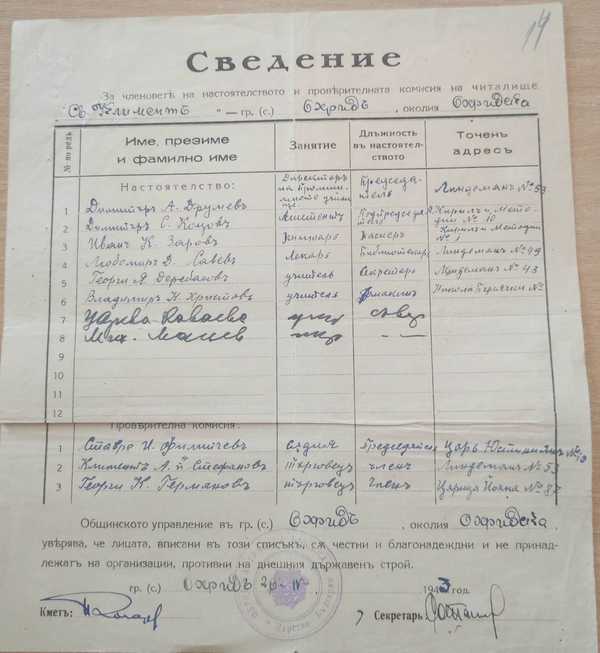 14
Сведение
За членоветѣ на настоятелството и провѣрителната комисия на читалище
„Св. Климентъ" — гр. (с.) Охридъ, околия Охридска
№ по редъ Име, презиме и фамилно име Занятие Длъжность въ настоятелството Точенъ адресъ
Настоятелство:
1 Димитъръ А. Друмевъ Директоръ на Председатель Линдеманъ № 53
2 Димитъръ С. Коцовъ Подпредседатель Кирилъ и Методи № 10
3 Иванъ К. Заровъ Касиеръ Кирилъ и Методи № 1
4 Любомиръ Д. Савевъ лекаръ библиотекаръ Линдеманъ № 49
5 Георги А. Деребановъ учитель секретаръ Линдеманъ № 43
6 Владимиръ Н. Христовъ учитель домакинъ №
7
8
9
10
11
12
Провѣрителна комисия:
1 Ставре И. Филипчевъ съдия Председатель Царь Юстиниянъ № 19
2 Климентъ А. п. Стефановъ търговецъ членъ Линдеманъ № 53
3 Георги К. Германовъ търговецъ членъ Царица Иоана № 87
Общинското управление въ гр. (с.) Охридъ, околия Охридска
увѣрява, че лицата, вписани въ този списъкъ, сѫ честни и благонадеждни и не принад-
лежатъ на организации, противни на днешния държавенъ строй.
гр. (с.) Охридъ 20 - IV - 1943 год.
Кметъ: Секретарь